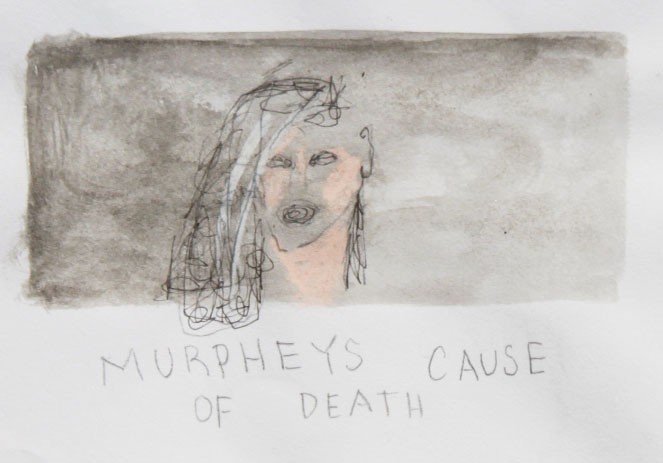 MURPHEYS CAUSE
OF DEATH